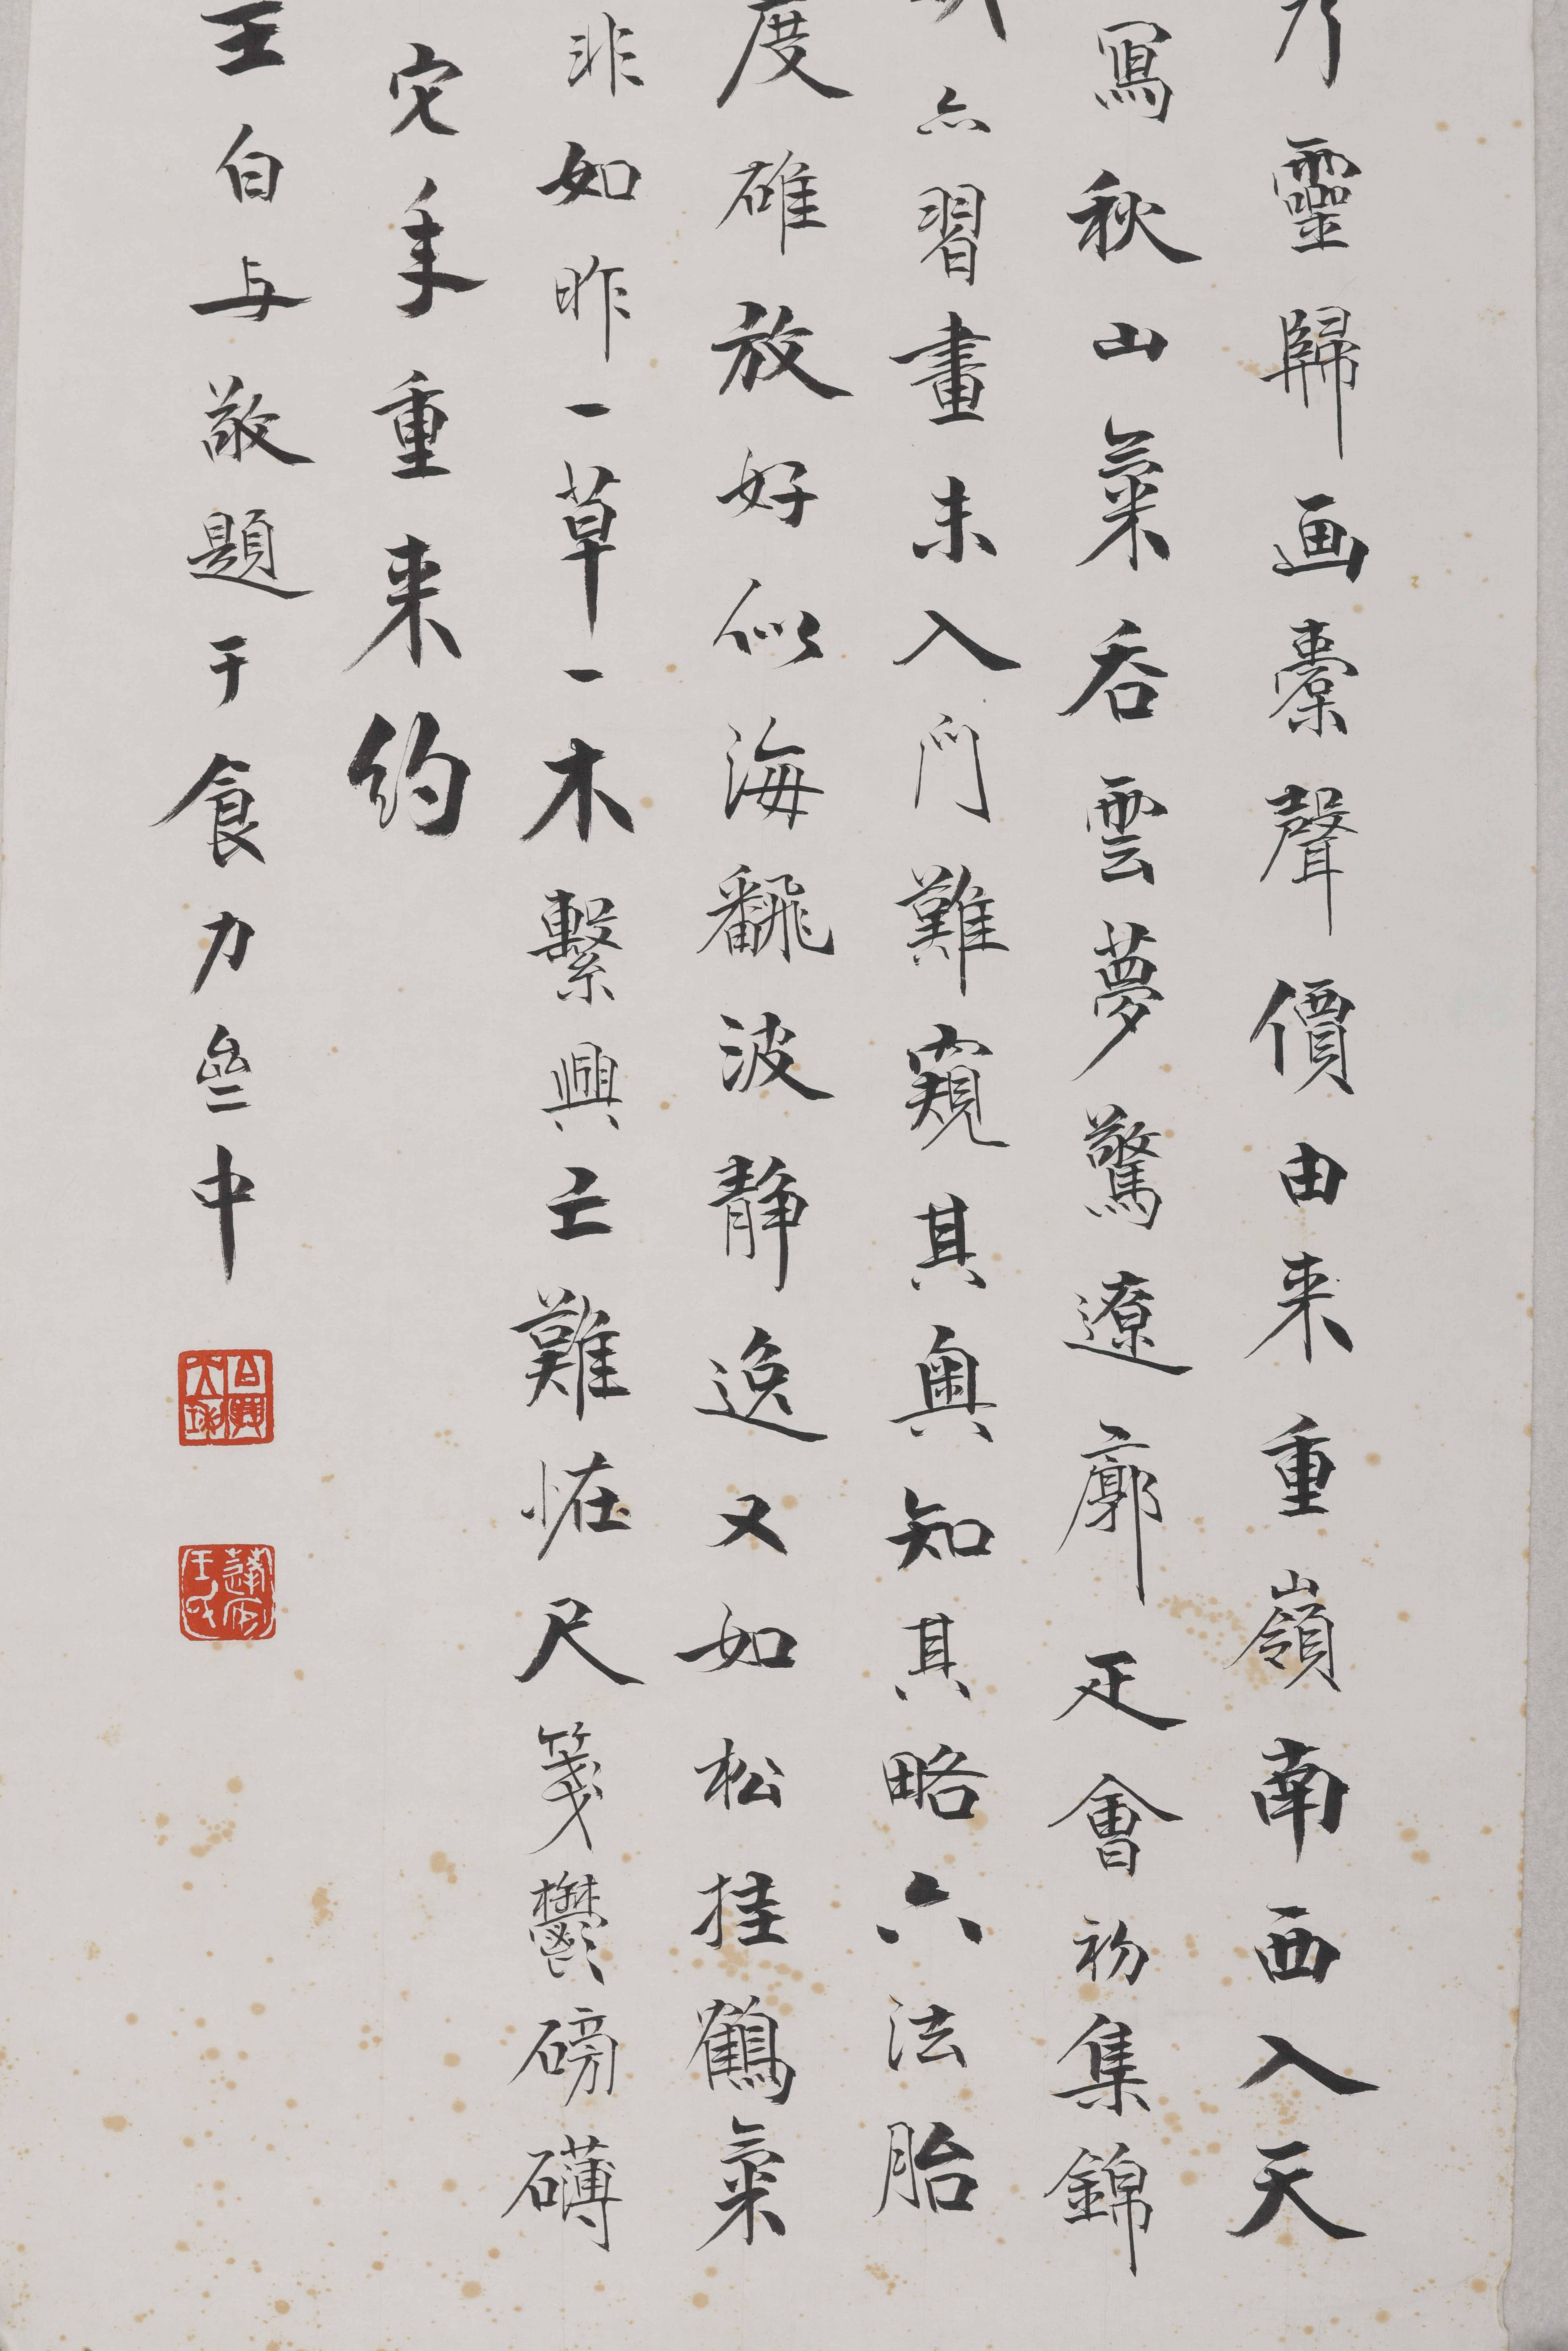 靈歸画槖聲價由来重嶺南西入天
寫秋山氣吞雲夢驚遼廓疋會初集錦
亦習畫未入門難窺其奧知其略六法胎
度碓放好似海飜波静逸又如松挂鶴氣
非如昨一草一木繫興亡難恠尺箋鬱磅礴
它年重来約
王自与敬題于食力齋中